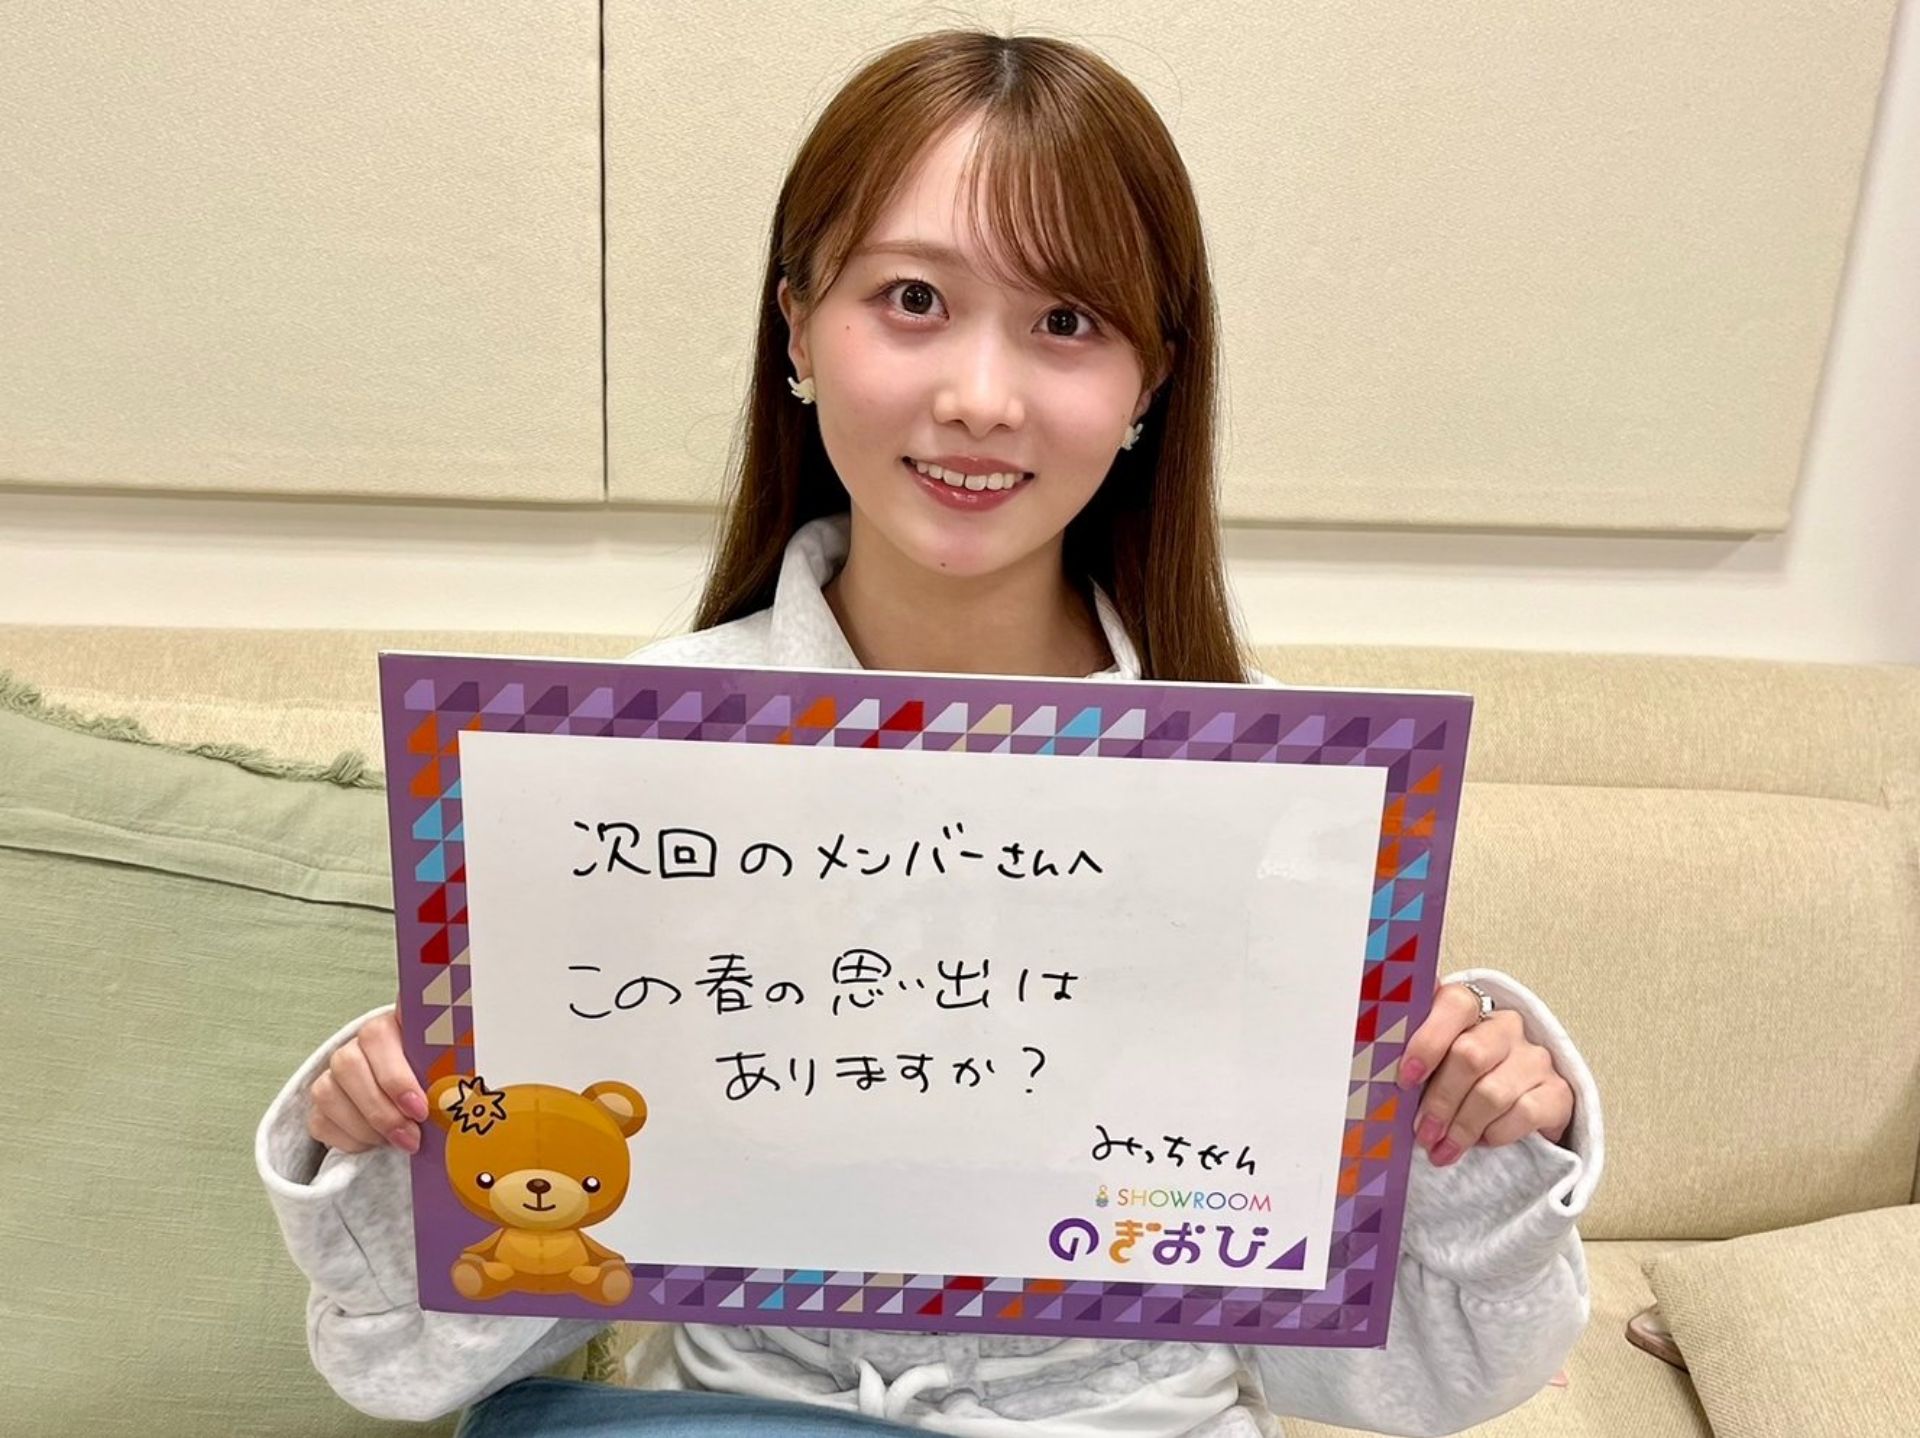 次回のメンバーさんへ
この春の思い出は
ありますか？
みっちゃん
SHOWROOM
のぎおび